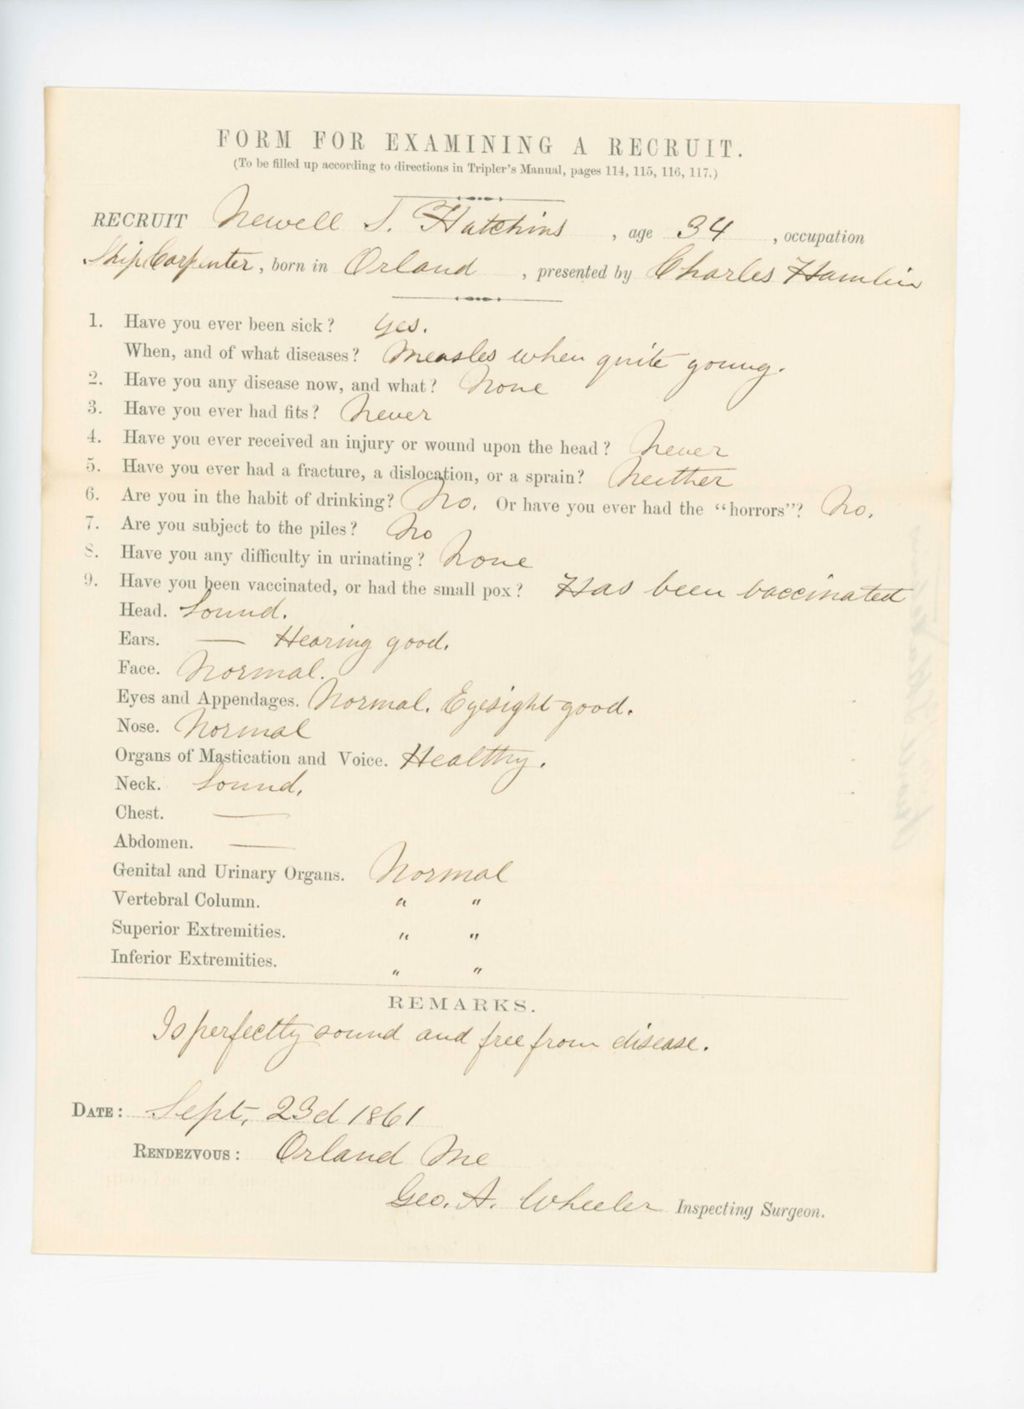 FORM FOR EXAMINING A RECRUIT.
(To be filled up according to directions in Tripler's Manual, pages 114, 115, 116, 117.)
RECRUIT Newell S. Hutchins, age 34, occupation
Ship Carpenter, born in Orland, presented by Charles Hamlin
1. Have you ever been sick? Yes.
When, and of what diseases? Measles when quite young.
2. Have you any disease now, and what? None
3. Have you ever had fits? Never
4. Have you ever received an injury or wound upon the head? Never
5. Have you ever had a fracture, a dislocation, or a sprain? Neither
6. Are you in the habit of drinking? No. Or have you ever had the "horrors"? No.
7. Are you subject to the piles? No
8. Have you any difficulty in urinating? None
9. Have you been vaccinated, or had the small pox? Has been vaccinated
Head. Sound.
Ears. — Hearing good.
Face. Normal.
Eyes and Appendages. Normal. Eyesight good.
Nose. Normal
Organs of Mastication and Voice. Healthy.
Neck. Sound.
Chest. —
Abdomen. —
Genital and Urinary Organs. Normal
Vertebral Column. " "
Superior Extremities. " "
Inferior Extremities. " "
REMARKS.
Is perfectly sound and free from disease.
DATE: Sept. 23d 1861
RENDEZVOUS: Orland Me
Geo. A. Wheeler Inspecting Surgeon.